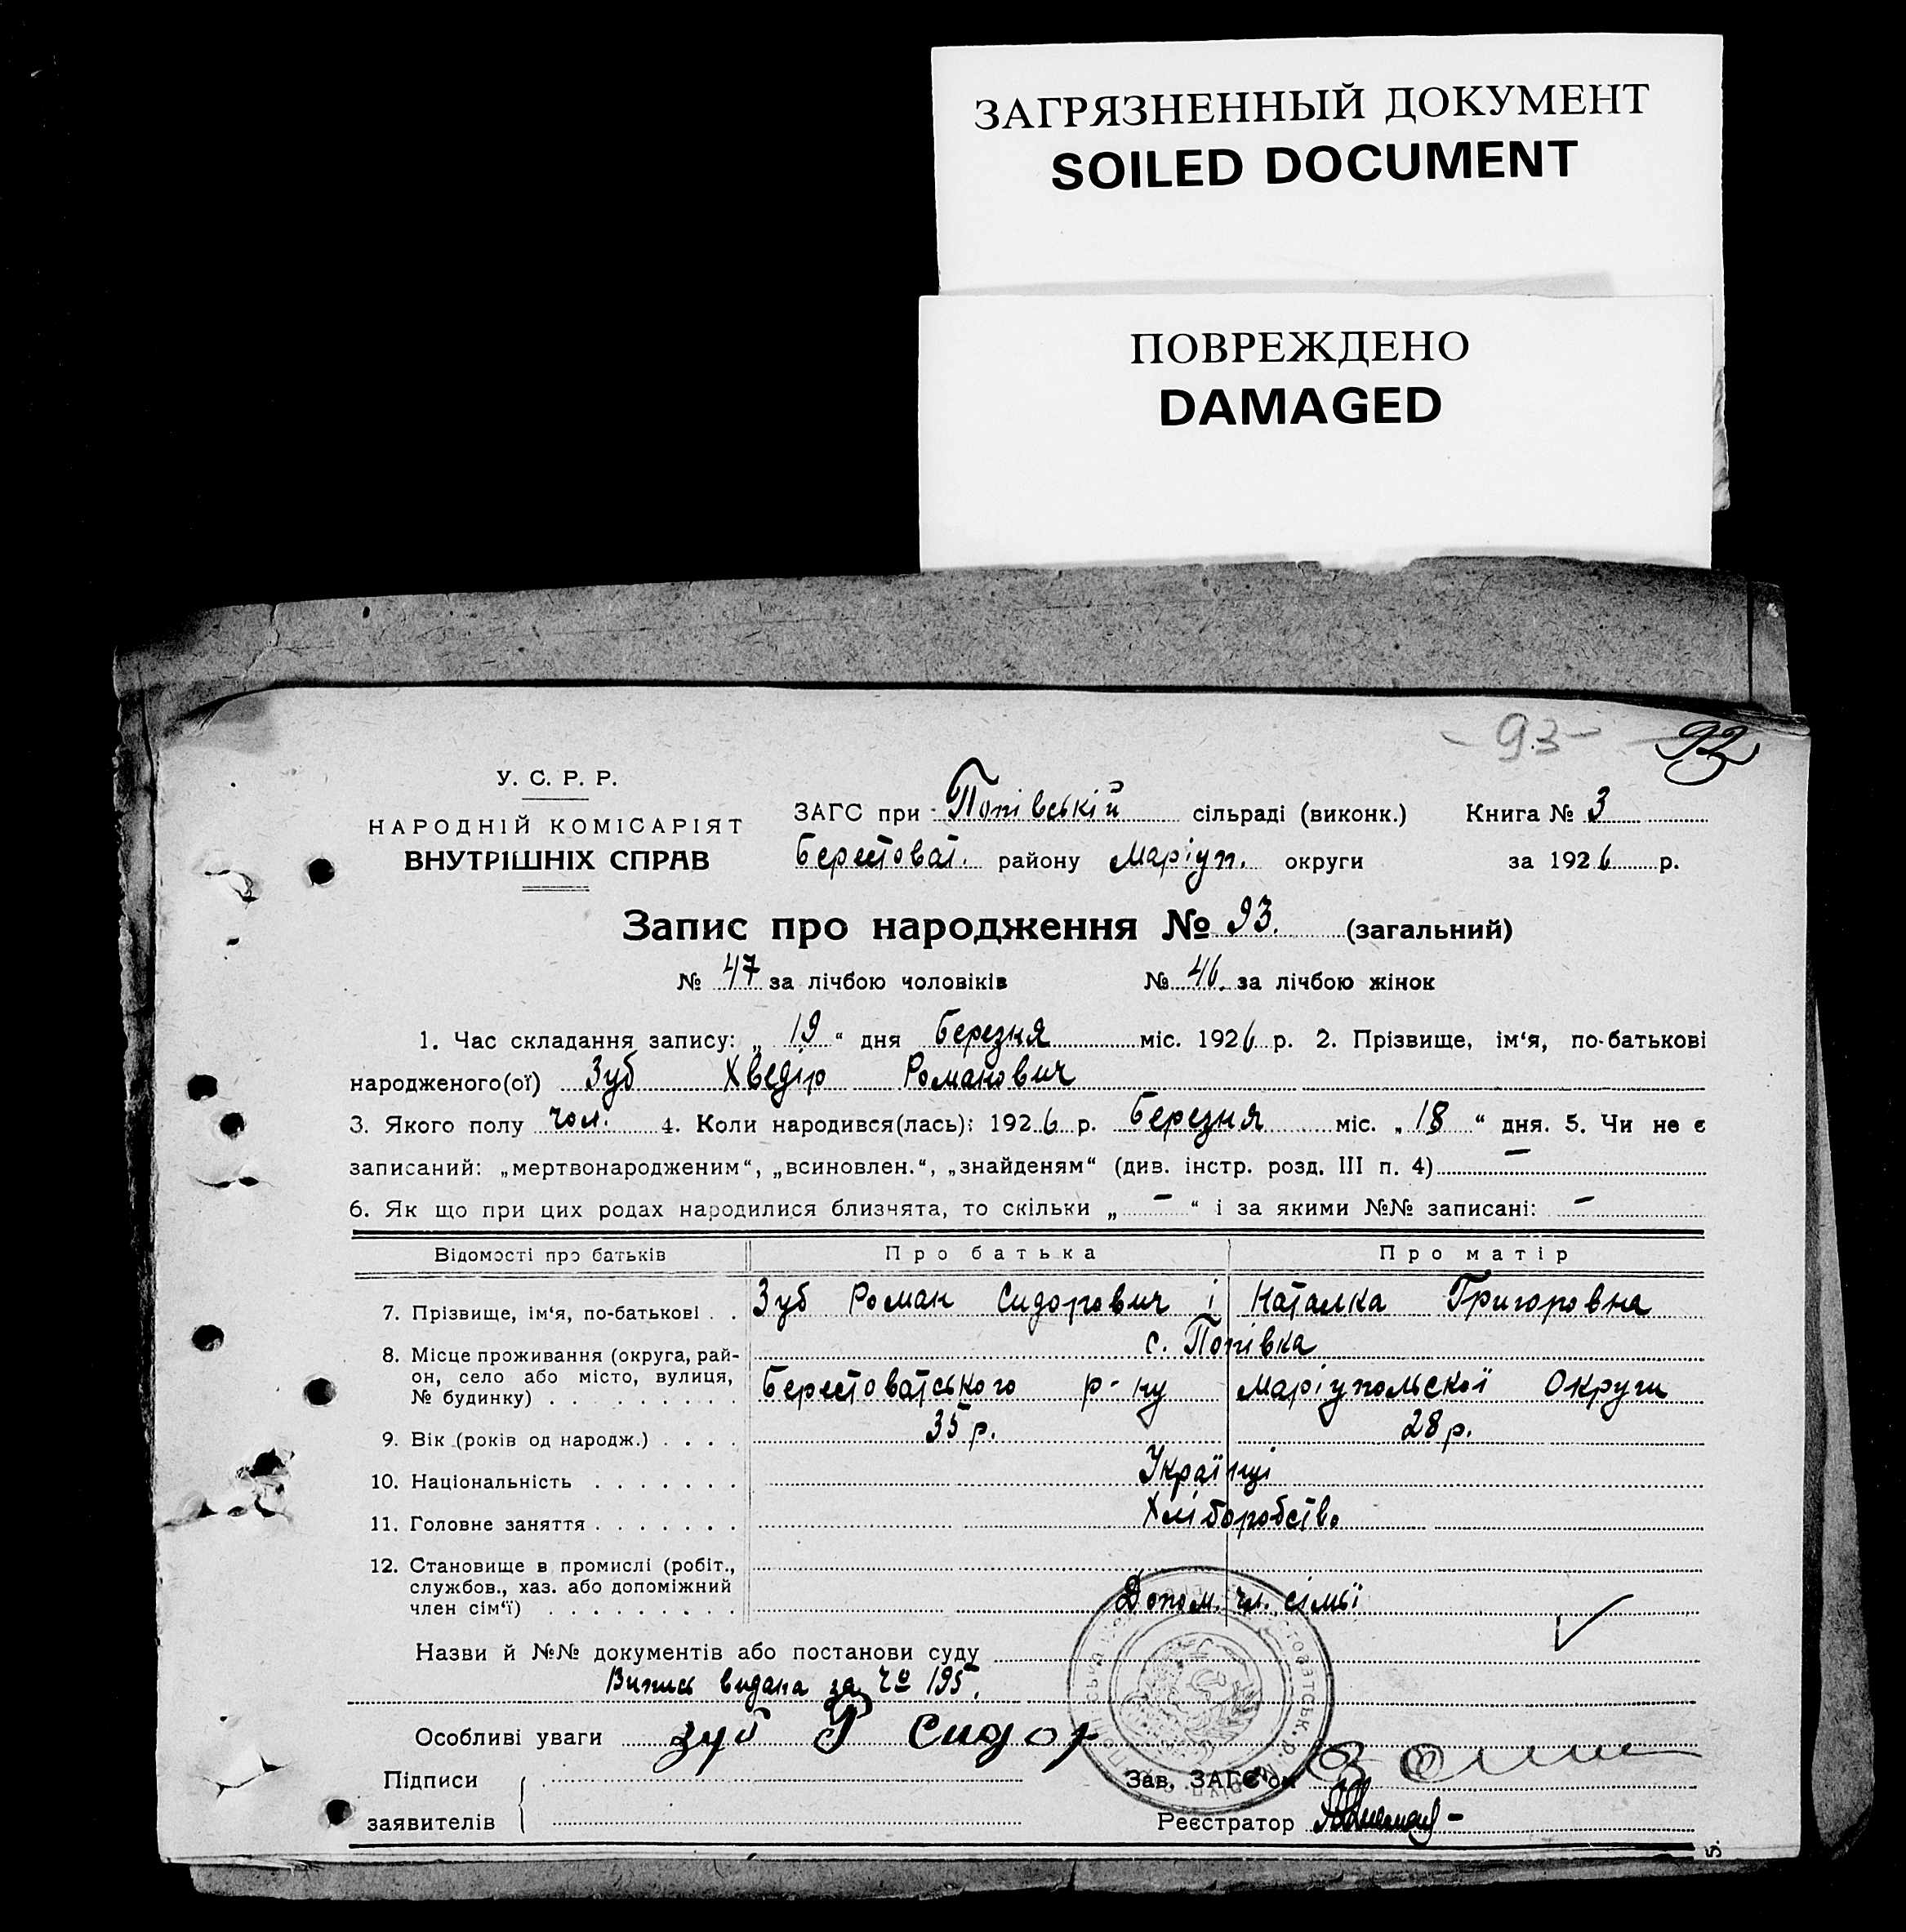 ЗАГРЯЗНЕННЫЙ ДОКУМЕНТ
SOILED DOCUMENT
ПОВРЕЖДЕНО
DAMAGED
- 93 - 93
У. С. Р. Р.
НАРОДНІЙ КОМІСАРІЯТ
ВНУТРІШНІХ СПРАВ
ЗАГС при Попівській сільраді (виконк.) Книга № 3
Берестоват. району Маріуп. округи за 1926 р.
Запис про народження № 93. (загальний)
№ 47 за лічбою чоловіків № 46. за лічбою жінок
1. Час складання запису: „ 19 “ дня Березня міс. 1926 р. 2. Прізвище, ім‘я, по-батькові
народженого(ої) Зуб Хведір Романович
3. Якого полу чол. 4. Коли народився(лась): 1926 р. Березня міс. „ 18 “ дня. 5. Чи не є
записаний: „мертвонародженим“, „всиновлен.“, „знайденям“ (див. інстр. розд. III п. 4) —
6. Як що при цих родах народилися близнята, то скільки „ — “ і за якими №№ записані: —
Відомості про батьків Про батька Про матір
7. Прізвище, ім‘я, по-батькові . . Зуб Роман Сидорович і Наталка Григоровна
8. Місце проживання (округа, рай- с. Попівка
он, село або місто, вулиця,
№ будинку) . . . . . . . . . Берестоватського р-ну Маріупольскої Округи
9. Вік (років од народж.) . . . . 35 р. 28 р.
10. Національність . . . . . . . Українці
11. Головне заняття . . . . . . . Хліборобство
12. Становище в промислі (робіт.,
службов., хаз. або допоміжний
член сім‘ї) . . . . . . . . . Допом. чл. сімьї
Назви й №№ документів або постанови суду
Випись видана за № 195.
Особливі уваги Зуб Р Сидор
Підписи
заявителів
Зав. ЗАГС‘ом
Реєстратор
5.